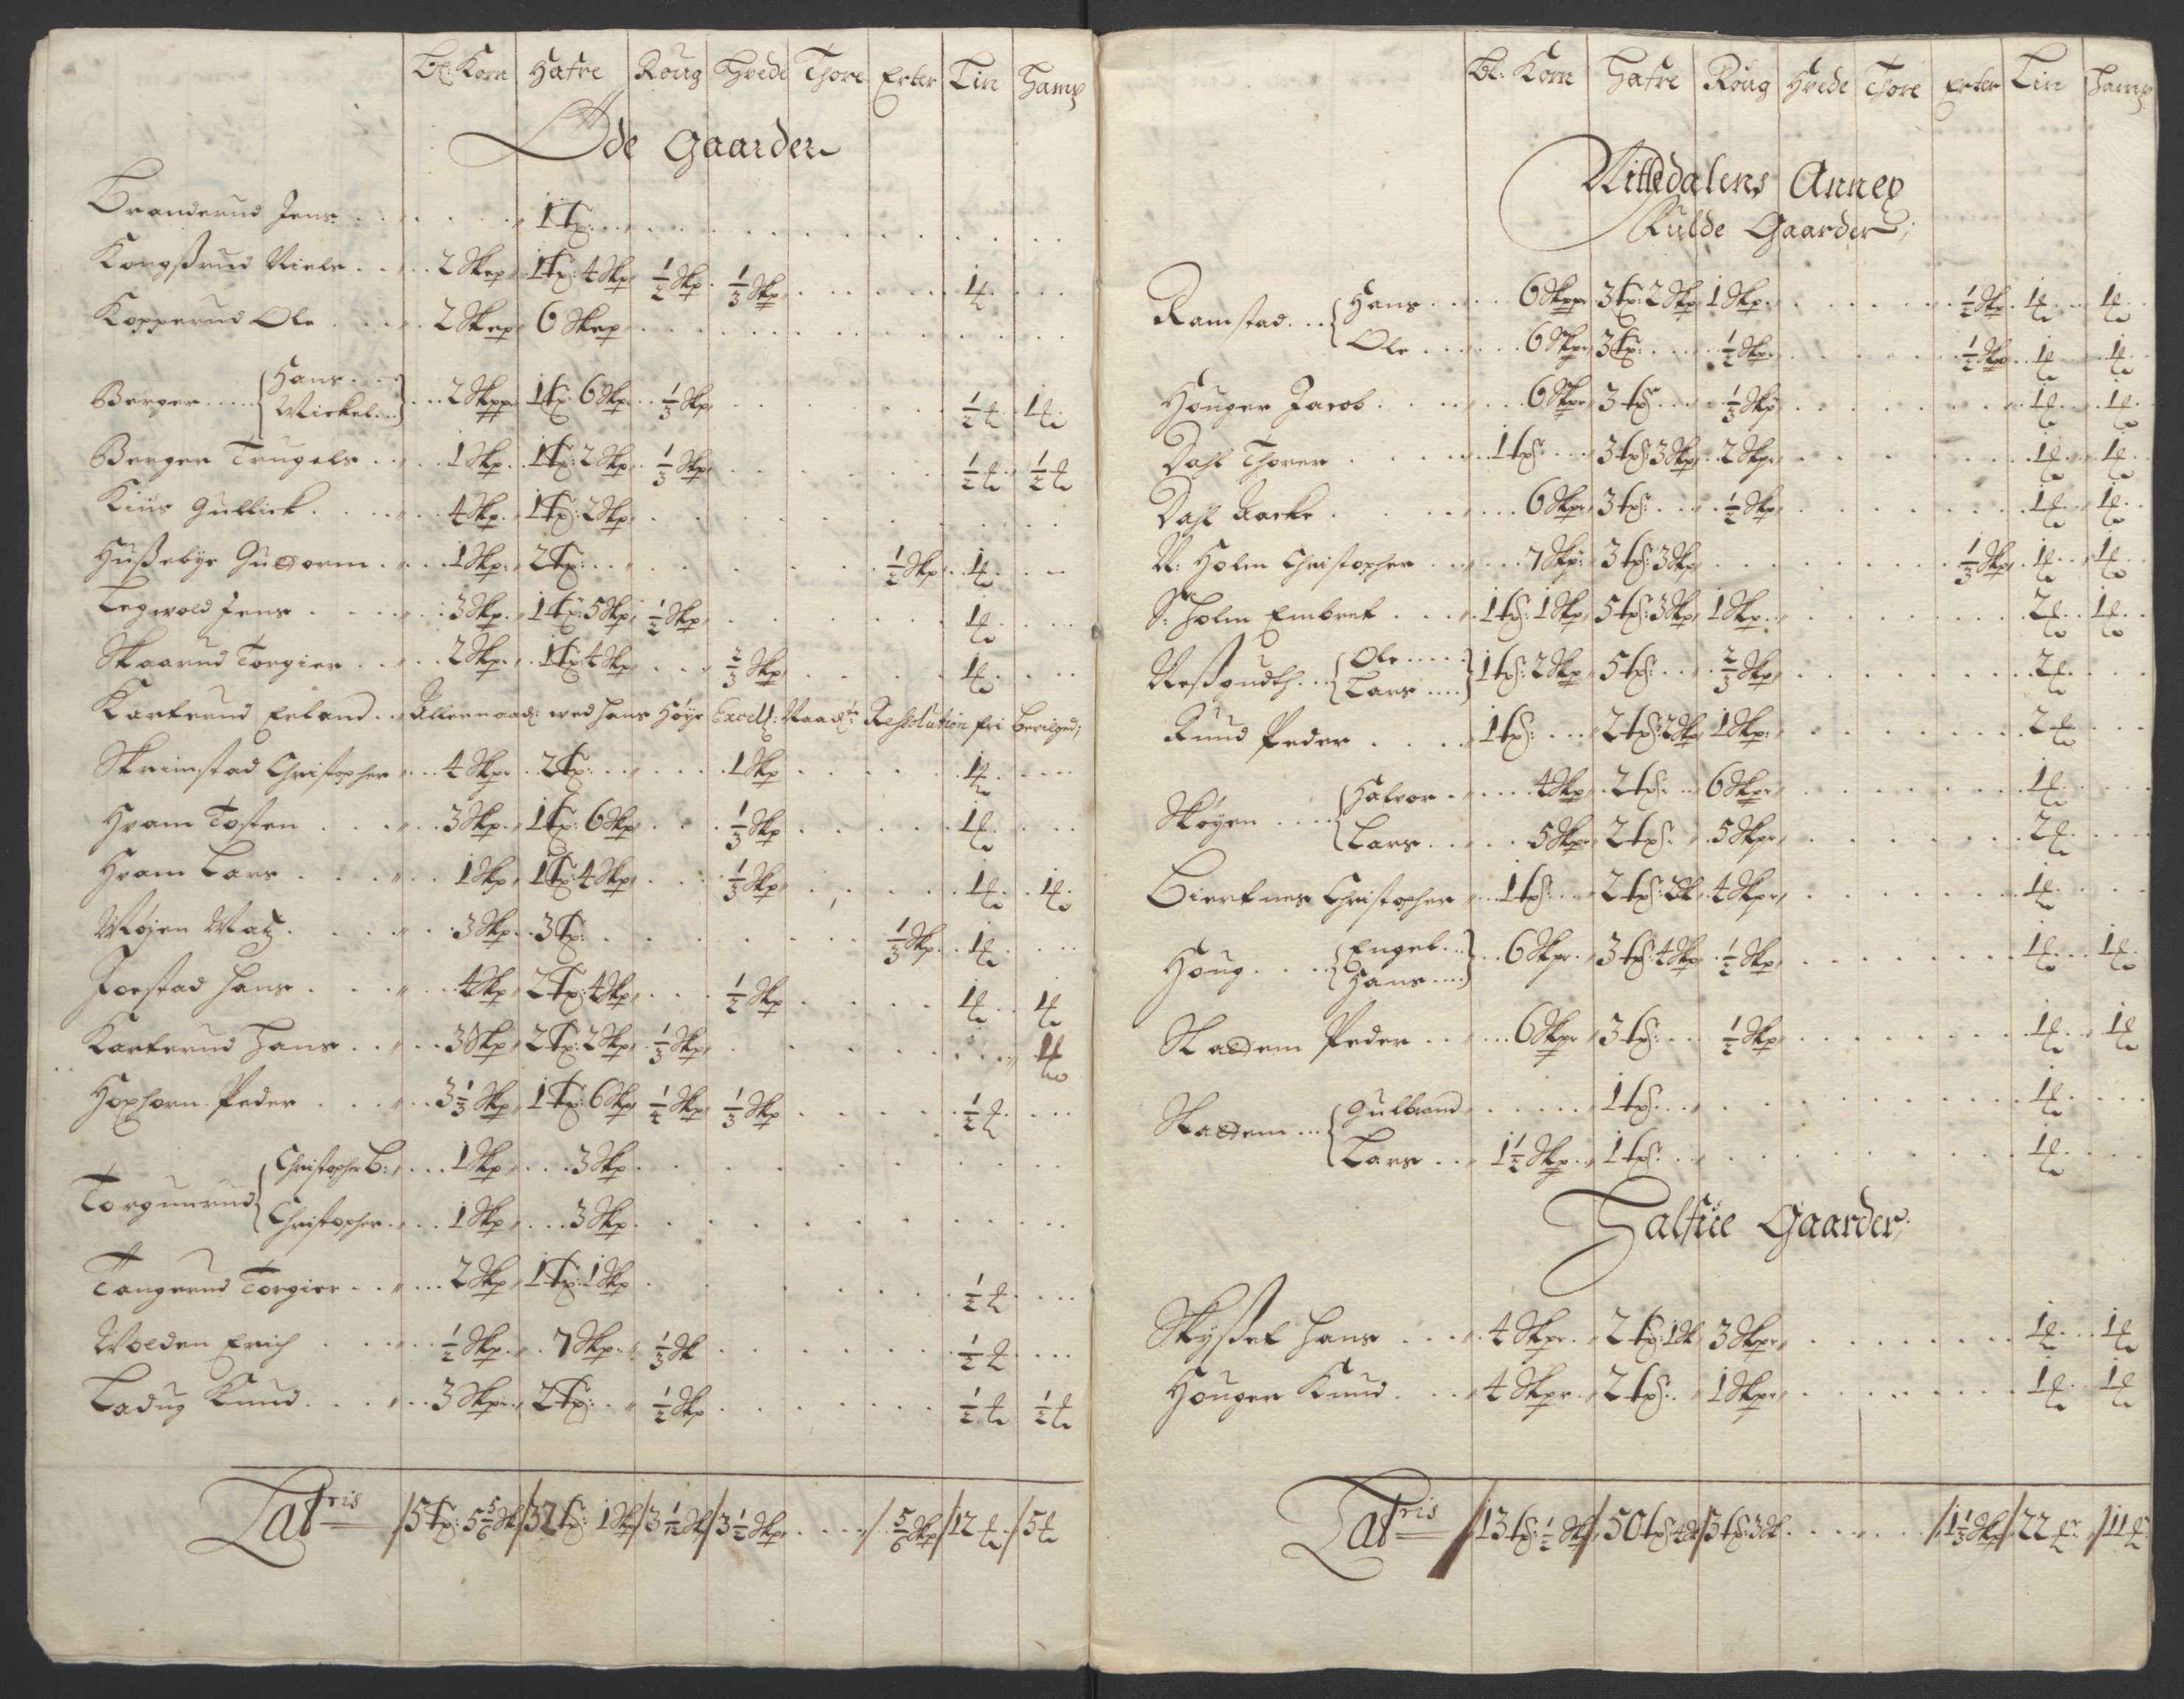 Bl: Korn Hafre Roug Hvede Thore Erter Lin Hamp
Øde Gaarder
Branderud Jens 1 tx:
Kongsrud Niels 2 Skep 1 tx: 4 Skp 1/2 Skp 1/3 Skp 1 ℔
Kopperud Ole 2 Skep 6 Skep
Berger { Hans Mickel } 2 Skpp 1 tx: 6 Skp 1/3 Skp 1/2 ℔ 1 ℔
Berger Trugels 1 Skp 1 tx: 2 Skp 1/3 Skp 1/2 ℔ 1/2 ℔
Kiüs Gullick 4 Skp 1 tx: 2 Skp
Hußebye Guttorm 1 Skp 2 tx: 1/2 Skp 1 ℔
Tegwold Jens 3 Skp 1 tx: 5 Skp 1/2 Skp 1 ℔
Skaarud Torgier 2 Skp 1 tx: 4 Skp 2/3 Skp 1 ℔
Karterud Erland Allernaad: wed hans Høye Excell: Naad: Resolution fri bevilged;
Skrimstad Christopher 4 Skp 2 tx: 1 Skp 1 ℔
Hvam Tosten 3 Skp 1 tx: 6 Skp 1/3 Skp 1 ℔
Hvam Lars 1 Skp 1 tx: 4 Skp 1/3 Skp 1 ℔ 1 ℔
Møyen Matz 3 Skp 3 tx: 1/3 Skp 1 ℔
Foestad Hans 4 Skp 2 tx: 4 Skp 1/2 Skp 1 ℔ 1 ℔
Karterud Hans 3 Skp 2 tx: 2 Skp 1/3 Skp 1 ℔
Hoxhorn Peder 3 1/3 Skp 1 tx: 6 Skp 1/2 Skp 1/3 Skp 1/2 ℔
Torgunrud { Christopher L: 1 Skp 3 Skp
Christopher 1 Skp 3 Skp
Tangerud Torgier 2 Skp 1 tx: 1 Skp 1/2 ℔
Wolden Erich 1/2 Skp 7 Skp 1/3 Sk 1/2 ℔
Ladug Knud 3 Skp 2 tx: 1/2 Skp 1/2 ℔ 1/2 ℔
Latris /5 tx: 5 5/6 Sk /32 tx: 1 Sk /3 1/12 Sk /3 1/2 Skp / 5/6 Skp /12 ℔ /5 ℔
Bl: Korn Hafre Roug Hvede Thore Erter Lin Hamp
Nittedalens Annex
Fulde Gaarder;
Ramstad { Hans 6 Skpp 3 tx: 2 Skp 1 Skp 1/2 Skp 1 ℔ 1 ℔
Ole 6 Skp 3 tx: 1/2 Skp 1/2 Skp 1 ℔ 1 ℔
Houger Jacob 6 Skp 3 tx: 1/3 Skp 1 ℔ 1 ℔
Dahl Thorer 1 tx: 3 tx: 3 Skp 2 Skp 1 ℔ 1 ℔
Dahl Aacke 6 Skp 3 tx: 1/2 Skp 1 ℔ 1 ℔
N: Holm Christopher 7 Skp 3 tx: 3 Skp 1/3 Skp 1 ℔ 1 ℔
S: Holm Embret 1 tx: 1 Skp 5 tx: 3 Skp 1 Skp 2 ℔ 1 ℔
{ Ole Lars } 1 tx: 2 Skp 5 tx: 2/3 Skp 2 ℔
Ruud Peder 1 tx: 2 tx: 2 Skp 1 Skp 2 ℔
Skøyen { Halvor 4 Skp 2 tx: 6 Skp 1 ℔
Lars 5 Skp 2 tx: 5 Skp 2 ℔
Bierknes Christopher 1 tx: 2 tx: 3 Sk 4 Skp 1 ℔
Houg { Engel Hans } 6 Skp 3 tx: 4 Skp 1/2 Skp 1 ℔ 1 ℔
Slattem Peder 6 Skp 3 tx: 1/2 Skp 1 ℔ 1 ℔
Slattem { Gulbrand 1 tx: 1 ℔
Lars 1 1/2 Skp 1 tx: 1 ℔
Halfue Gaarder;
Skyset Hans 4 Skp 2 tx: 1 Sk 3 Skp 1 ℔ 1 ℔
Houger Knud 4 Skp 2 tx: 1 Skp 1 ℔ 1 ℔
Latris /13 tx: 1/2 Sk /50 tx: 4 Sk /3 tx: 3 Sk /1 1/3 Skp /22 ℔ /11 ℔